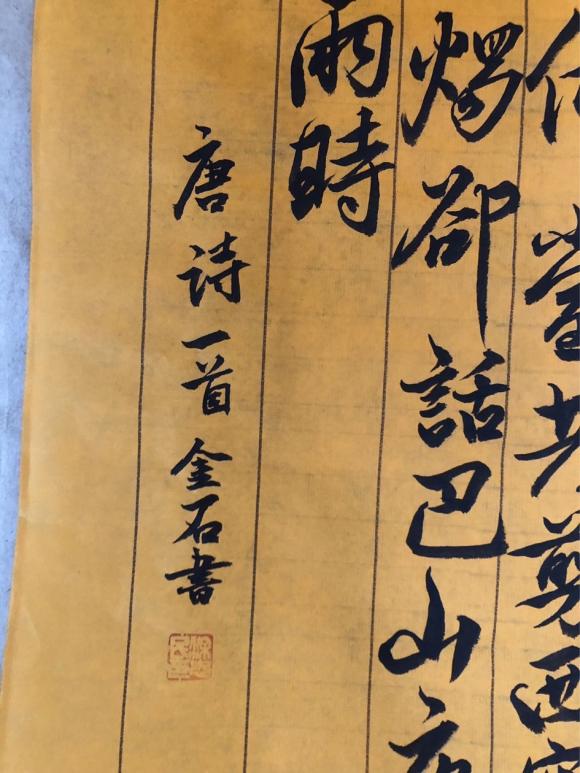 何當共剪西窗
燭卻話巴山夜
雨時
唐詩一首 金石書